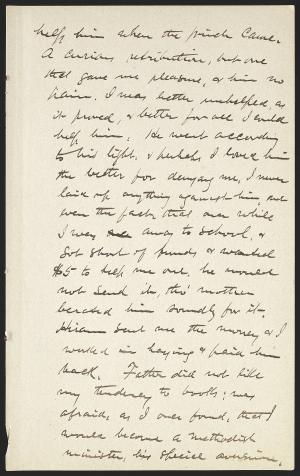 help him when the pinch came.
A curious retribution, but one
that gave me pleasure, & him no
pain. I was better unhelped, as
it proved, & better for all I could
help him. He went according
to his light, & perhaps I loved him
the better for denying me. I never
laid up anything against him, not
even the fact, that once while
I was away to school, &
got short of funds, & wanted
$5 to help me out, he would
not send it, tho' mother
berated him soundly for it.
Hiram sent me the money & I
worked in haying & paid him
back. Father did not like
my tendency to books; was
afraid, as I once found, that I
would become a methodist
minister, his special aversion.